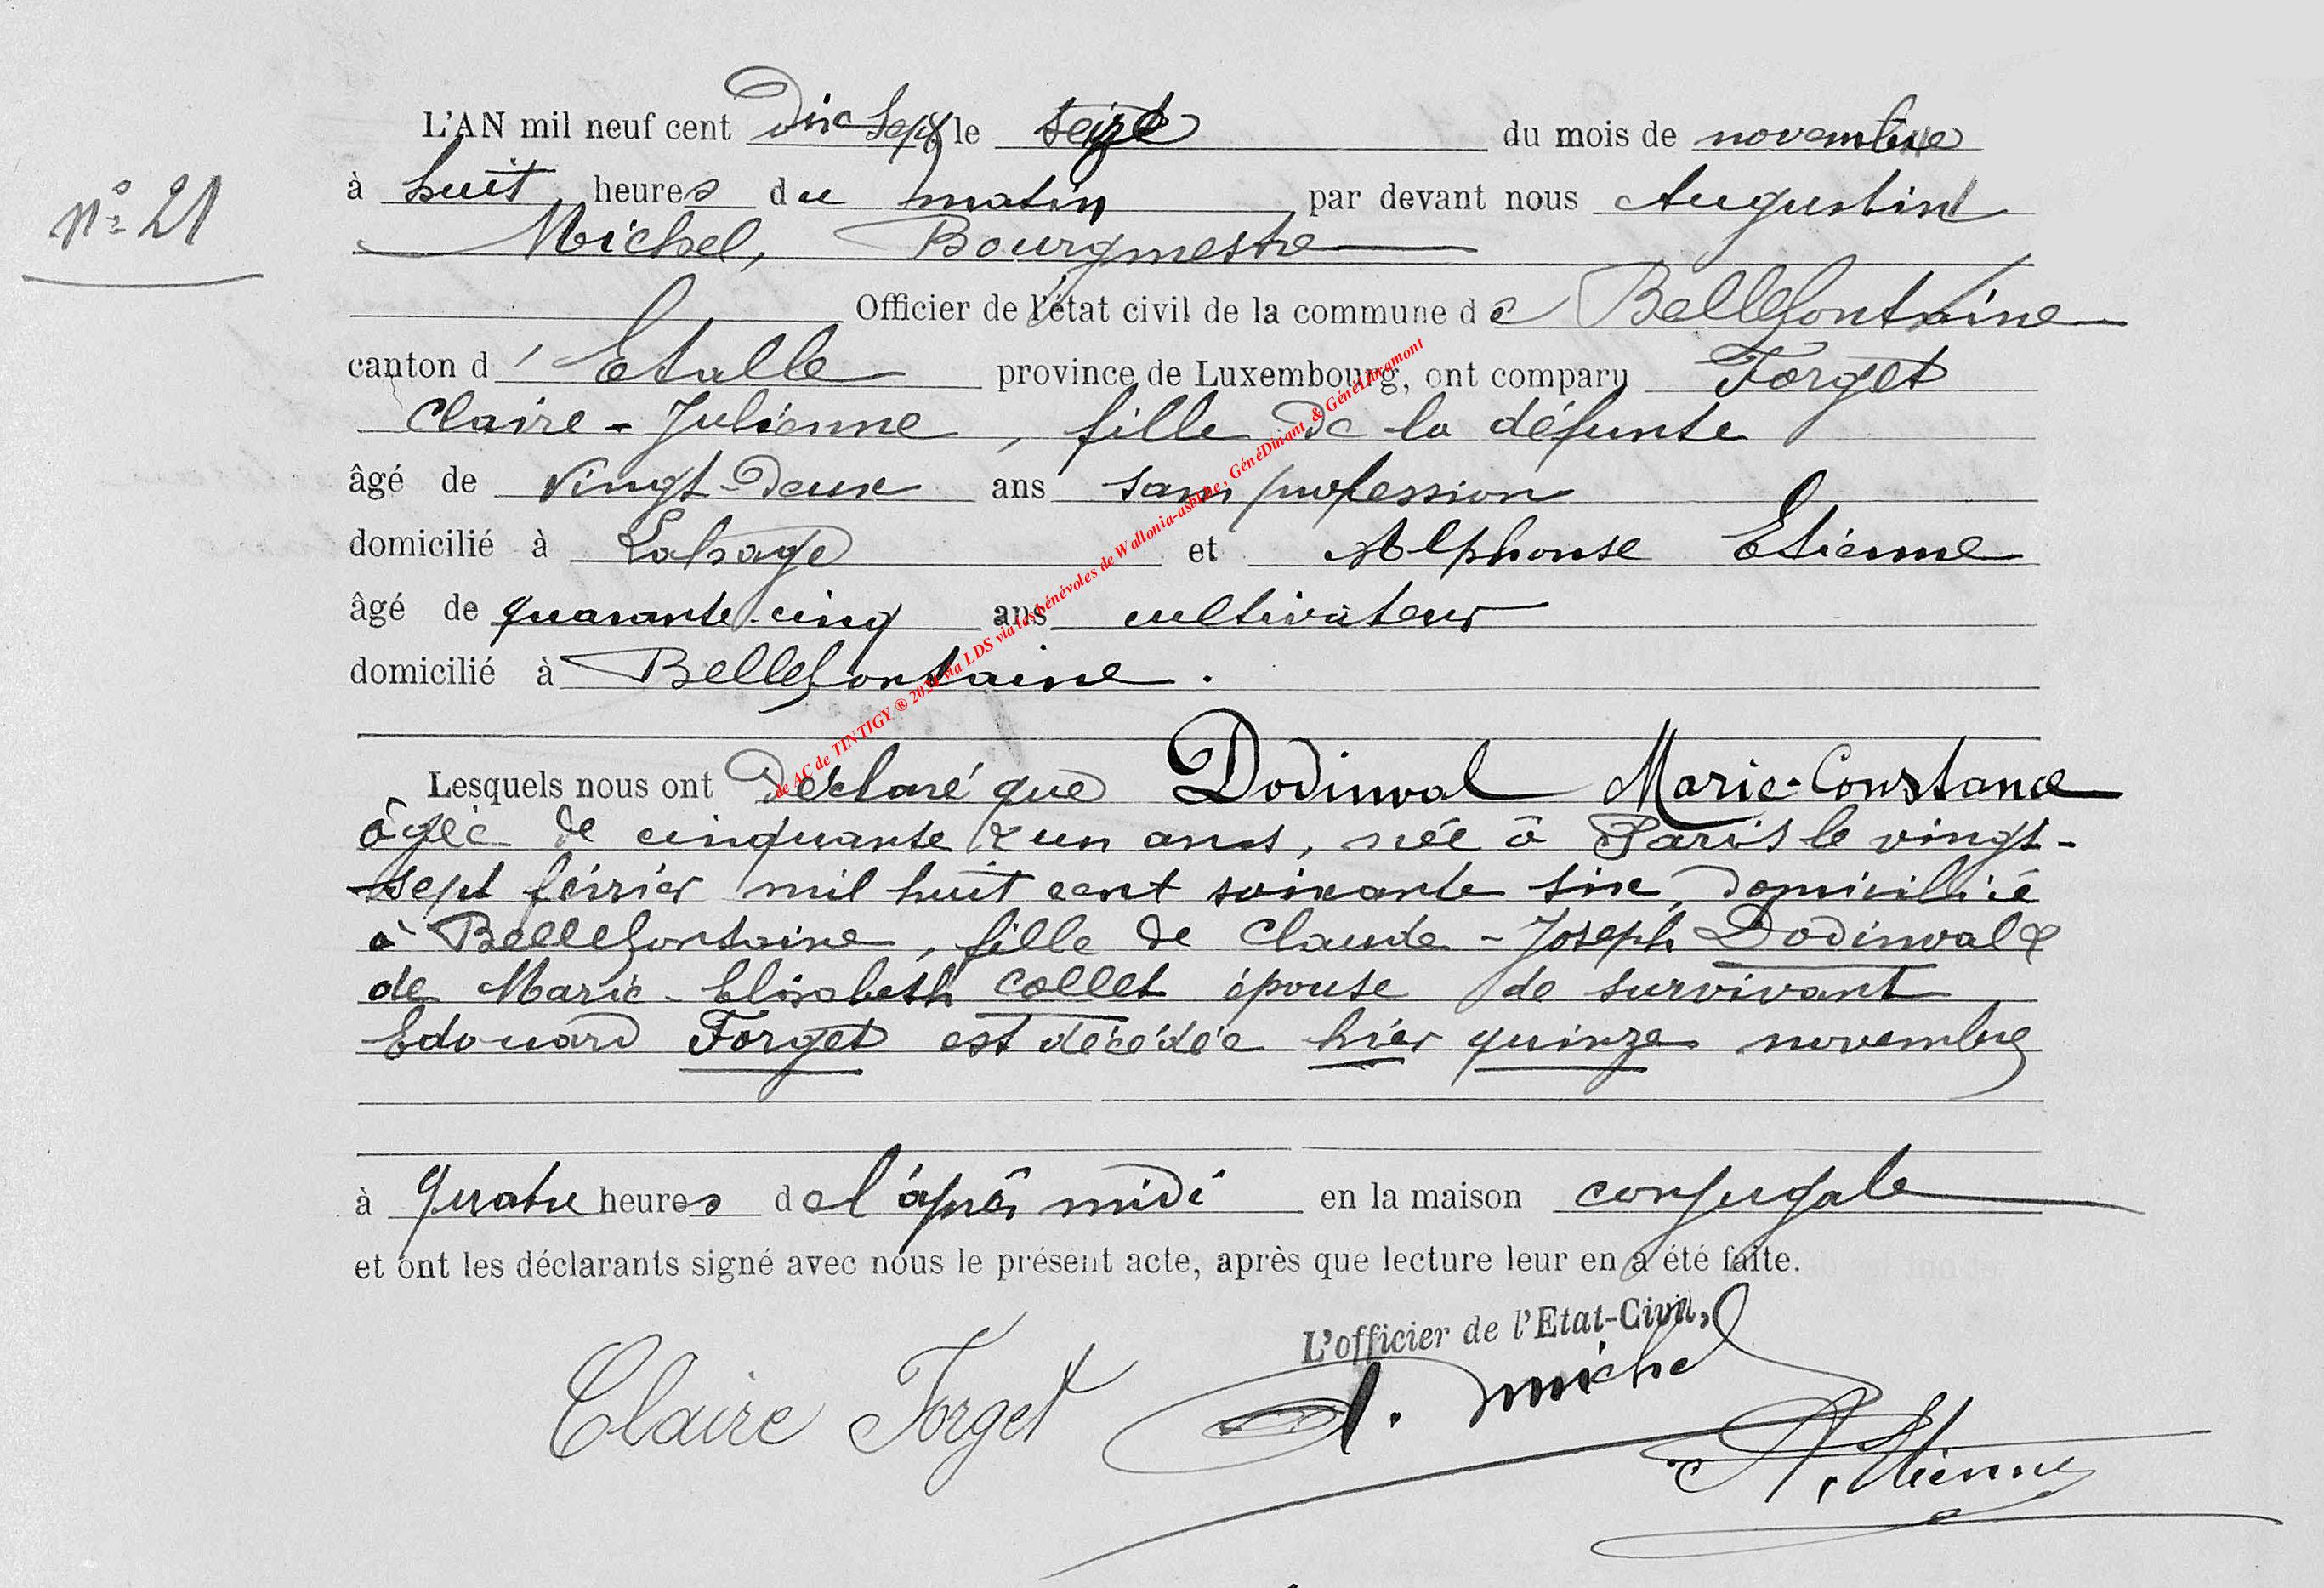 L'AN mil neuf cent Dix Sept le seize du mois de novembre
n° 21
à huit heures du matin par devant nous Augustin
Michel, Bourgmestre
Officier de l'état civil de la commune de Bellefontaine
canton d'Etalle province de Luxembourg, ont comparu Forget
Claire-Julienne, fille de la défunte
âgé de vingt-deux ans sans profession
domicilié à Lahage et Alphonse Etienne
âgé de quarante-cinq ans cultivateur
domicilié à Bellefontaine.
de AC de TINTIGY ® via LDS via les bénévoles de Wallonia-asbl.be, GénéDinant & GénéLibramont
Lesquels nous ont déclaré que Dodinval Marie-Constance
âgée de cinquante & un ans, née à Paris le vingt-
sept février mil huit cent soixante six, domiciliée
à Bellefontaine, fille de Claude-Joseph Dodinval &
de Marie-Elisabeth Collet épouse de survivant
Edouard Forget est décédée hier quinze novembre
à quatre heures de l'après midi en la maison conjugale
et ont les déclarants signé avec nous le présent acte, après que lecture leur en a été faite.
L'officier de l'Etat-Civil,
Claire Forget A. Michel
A. Etienne